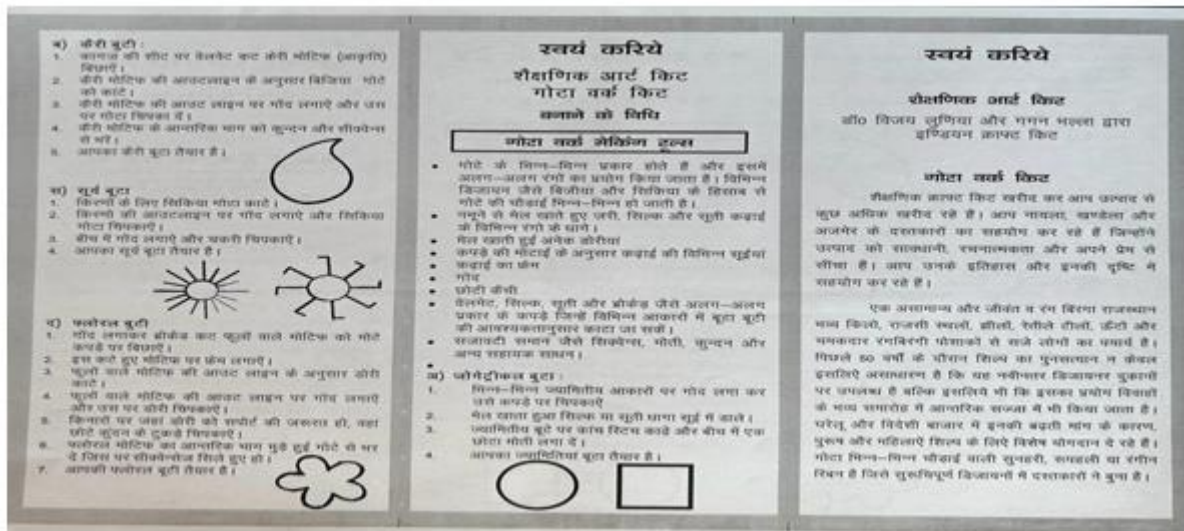 ब) कैरी बूटी :
1. कागज की शीट पर वेलवेट कट कैरी मोटिफ (आकृति)
बिछाएँ।
2. कैरी मोटिफ की आउटलाइन के अनुसार बिजिया गोटे
को काटे।
3. कैरी मोटिफ की आउट लाइन पर गोंद लगाएँ और उस
पर गोटा चिपका दें।
4. कैरी मोटिफ के आन्तरिक भाग को कुन्दन और सीक्वेन्स
से भरें।
5. आपका कैरी बूटा तैयार है।
स) सूर्य बूटा
1. किरणों के लिए सिकिया गोटा काटे।
2. किरणों की आउटलाइन पर गोंद लगाएँ और सिकिया
गोटा चिपकाएँ।
3. बीच में गोंद लगाएँ और चकरी चिपकाएँ।
4. आपका सूर्य बूटा तैयार है।
द) फ्लोरल बूटी
1. गोंद लगाकर ब्रोकेड कट फूलों वाले मोटिफ को मोटे
कपड़े पर बिछाएँ।
2. इस कटे हुए मोटिफ पर फ्रेम लगाएँ।
3. फूलों वाले मोटिफ की आउट लाइन के अनुसार डोरी
काटे।
4. फूलों वाले मोटिफ की आउट लाइन पर गोंद लगाएँ
और उस पर डोरी चिपकाएँ।
5. किनारों पर जहां डोरी को सपोर्ट की जरूरत हो, वहां
छोटे कुंदन के टुकड़े चिपकाएँ।
6. फ्लोरल मोटिफ का आन्तरिक भाग मुड़े हुई गोटे से भर
दें जिस पर सीक्वेन्सेज सिले हुए हो।
7. आपकी फ्लोरल बूटी तैयार है।
स्वयं करिये
शैक्षणिक आर्ट किट
गोटा वर्क किट
बनाने की विधि
गोटा वर्क मेकिंग टूल्स
• गोटे के भिन्न–भिन्न प्रकार होते हैं और इसमें
अलग–अलग रंगों का प्रयोग किया जाता है। विभिन्न
डिजायन जैसे बिजीया और सिकिया के हिसाब से
गोटे की चौड़ाई भिन्न–भिन्न हो जाती है।
• नमूने से मेल खाते हुए जरी, सिल्क और सूती कढ़ाई
के विभिन्न रंगों के धागे।
• मेल खाती हुई अनेक डोरीयां
• कपड़े की मोटाई के अनुसार कढ़ाई की विभिन्न सूईयां
• कढ़ाई का फ्रेम
• गोंद
• छोटी कैंची
• वेलमेट, सिल्क, सूती और ब्रोकेड जैसे अलग–अलग
प्रकार के कपड़े जिन्हें विभिन्न आकारों में बूटा बूटी
की आवश्यकतानुसार काटा जा सकें।
• सजावटी समान जैसे सिक्वेन्स, मोती, कुन्दन और
अन्य सहायक साधन।
•
अ) जोमेट्रीकल बूटा :
1. भिन्न–भिन्न ज्यामितीय आकारों पर गोंद लगा कर
उसे कपड़े पर चिपकाएँ
2. मेल खाता हुआ सिल्क या सूती धागा सूई में डाले।
3. ज्यामितीय बूटे पर कांच स्टिच काढ़े और बीच में एक
छोटा मोती लगा दें।
4. आपका ज्यामितिया बूटा तैयार है।
स्वयं करिये
शैक्षणिक आर्ट किट
डॉ0 विजय लूणिया और गगन भल्ला द्वारा
इण्डियन क्राफ्ट किट
गोटा वर्क किट
शैक्षणिक क्राफ्ट किट खरीद कर आप उत्पाद से
कुछ अधिक खरीद रहे हैं। आप नायला, खण्डेला और
अजमेर के दस्तकारों का सहयोग कर रहे हैं जिन्होंने
उत्पाद को सावधानी, रचनात्मकता और अपने प्रेम से
सींचा है। आप उनके इतिहास और इनकी दृष्टि में
सहयोग कर रहे हैं।
एक असामान्य और जीवंत व रंग बिरंगा राजस्थान
भव्य किलों, राजसी स्थलों, झीलों, रेतीले टीलों, ऊँटों और
चमकदार रंगबिरंगी पोशाकों से सजे लोगों का पर्याय है।
पिछले 50 वर्षों के दौरान शिल्प का पुनरुत्थान न केवल
इसलिए असाधारण है कि यह नवीनतर डिजायनर दुकानों
पर उपलब्ध है बल्कि इसलिये भी कि इसका प्रयोग विवाहों
के भव्य समारोह में आन्तरिक सज्जा में भी किया जाता है।
घरेलू और विदेशी बाजार में इनकी बढ़ती मांग के कारण,
पुरूष और महिलाऐं शिल्प के लिए विशेष योगदान दे रहे हैं।
गोटा भिन्न–भिन्न चौड़ाई वाली सुनहरी, रूपहली या रंगीन
रिबन है जिसे सुरूचिपूर्ण डिजायनों में दस्तकारों ने बुना है।